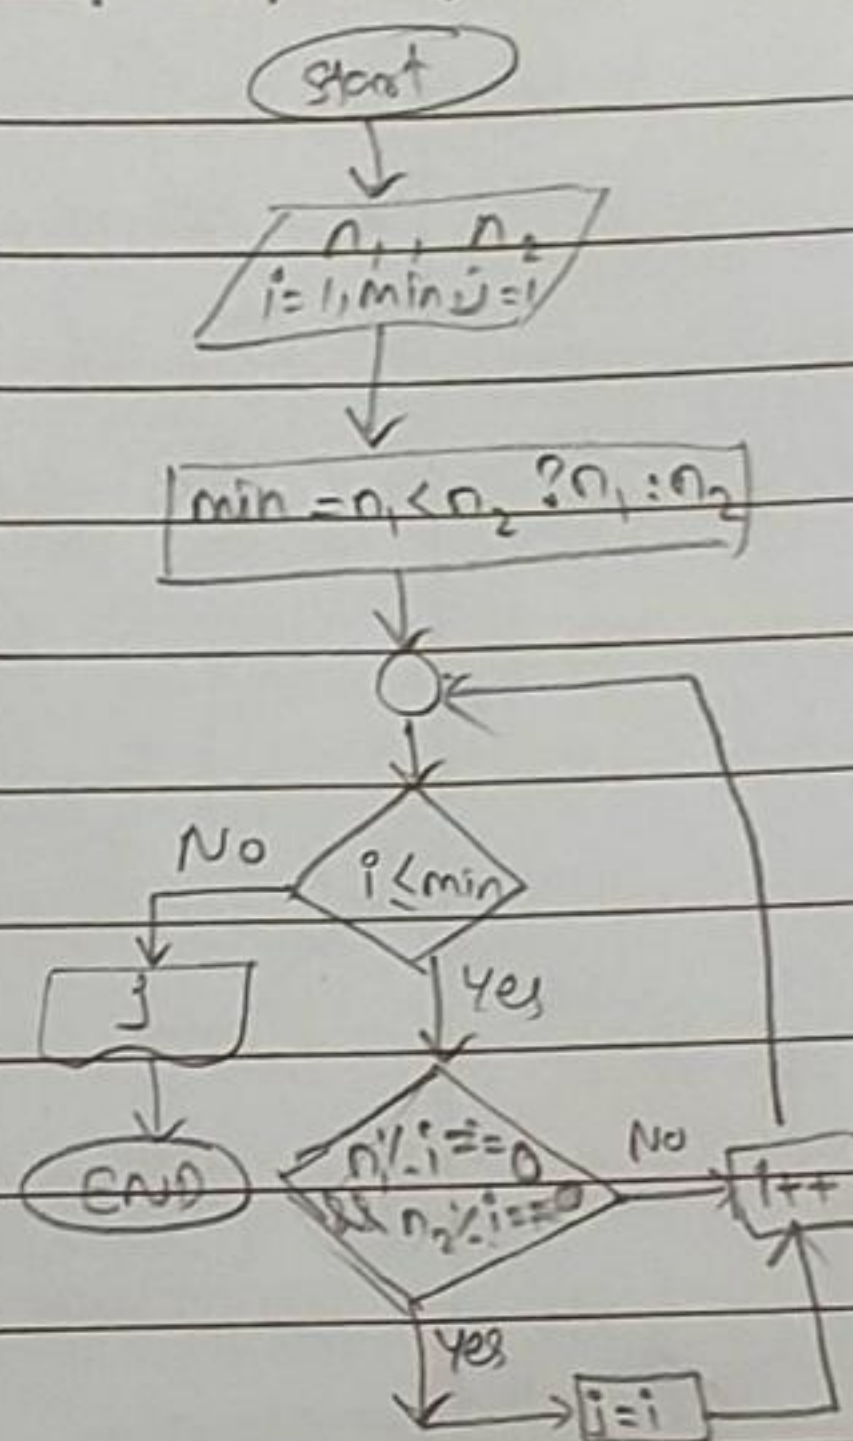 Start
n₁, n₂
i=1, min, j=1
min = n₁ < n₂ ? n₁ : n₂
No
i ≤ min
Yes
j
END
n₁%i==0
&& n₂%i==0
No
i++
Yes
j=i